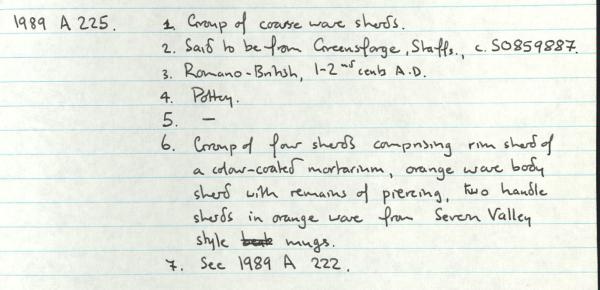 1989 A 225. 1. Group of coarse ware sherds.
2. Said to be from Greensforge, Staffs., c. SO859887.
3. Romano-British, 1-2nd cents A.D.
4. Pottery.
5. —
6. Group of four sherds comprising rim sherd of
a colour-coated mortarium, orange ware body
sherd with remains of piercing, two handle
sherds in orange ware from Severn Valley
style beak mugs.
7. See 1989 A 222.